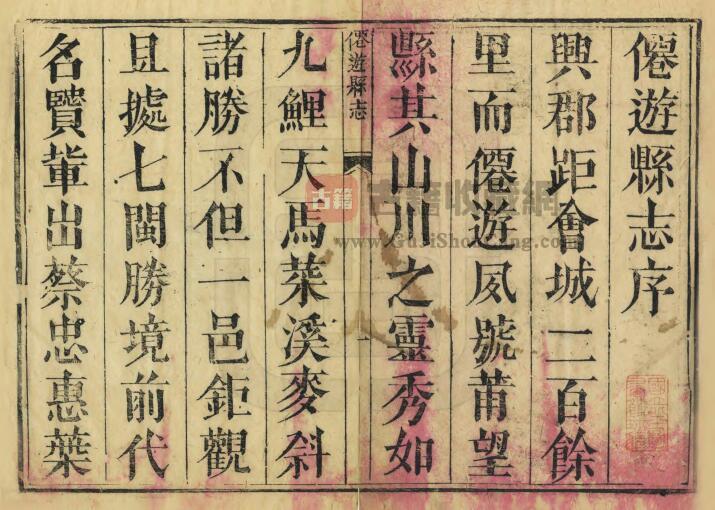 僊遊縣志序
興郡距會城二百餘
里而僊遊夙號莆望
縣其山川之靈秀如
僊遊縣志
一
九鯉天馬菜溪麥斜
諸勝不但一邑鉅觀
且㨿七閩勝境前代
名賢輩出蔡忠惠葉
古籍
古籍收藏網
www.GuJiShouCang.com